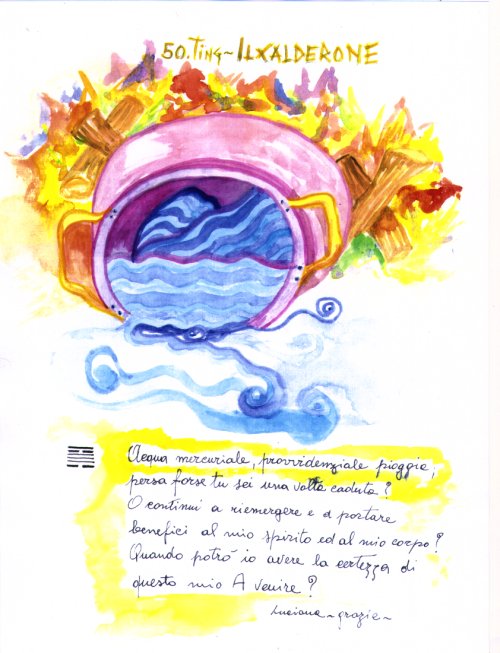 50. TING ~ IL CALDERONE
Acqua mercuriale, provvidenziale pioggia,
persa forse tu sei una volta caduta?
O continui a riemergere e a portare
benefici al mio spirito ed al mio corpo?
Quando potrò io avere la certezza di
questo mio A venire?
Luciana ~ grazie ~